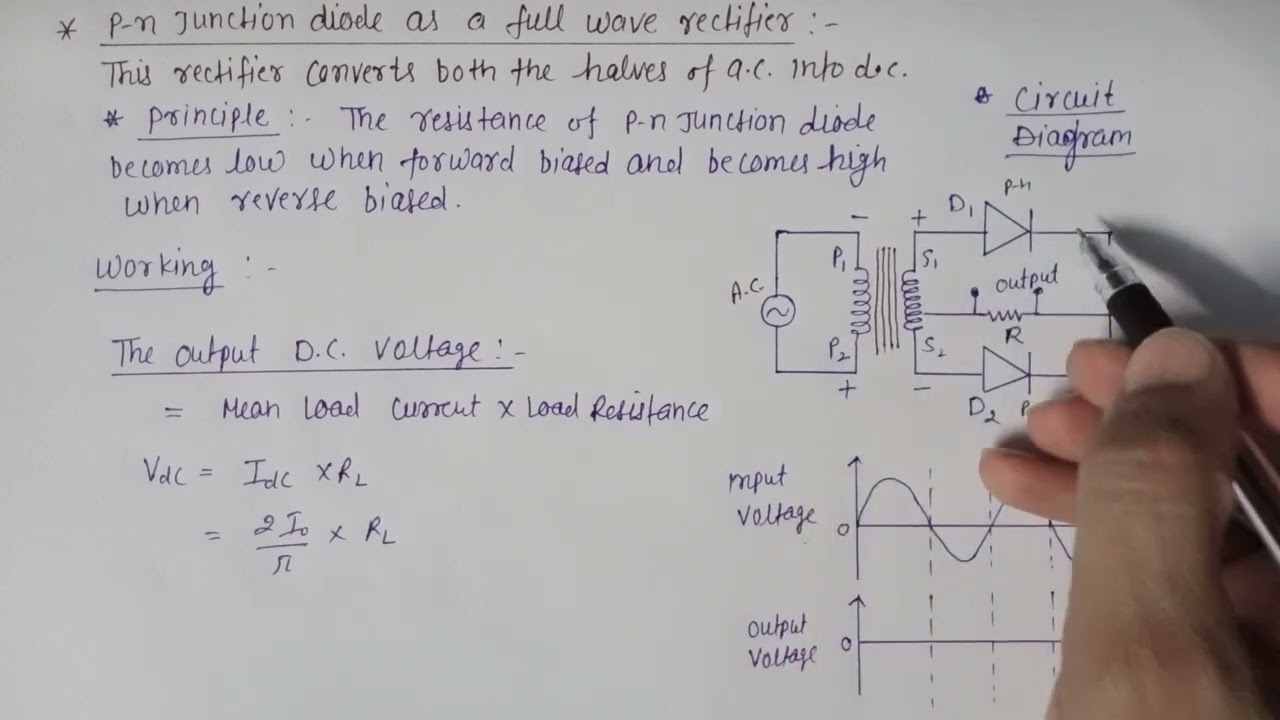 * P-n Junction diode as a full wave rectifier :-
This rectifier converts both the halves of a.c. into d.c.
* Principle :- The resistance of P-n Junction diode
becomes low when forward biased and becomes high
when reverse biased.
Working :-
The output D.C. Voltage :-
= Mean Load Current × Load Resistance
Vdc = Idc × RL
= 2I₀/π × RL
* Circuit
Diagram
P-n
D₁
- +
P₁ S₁
A.C.
output
R
P₂ S₂
+ -
D₂ P
Input
Voltage
0
output
Voltage
0